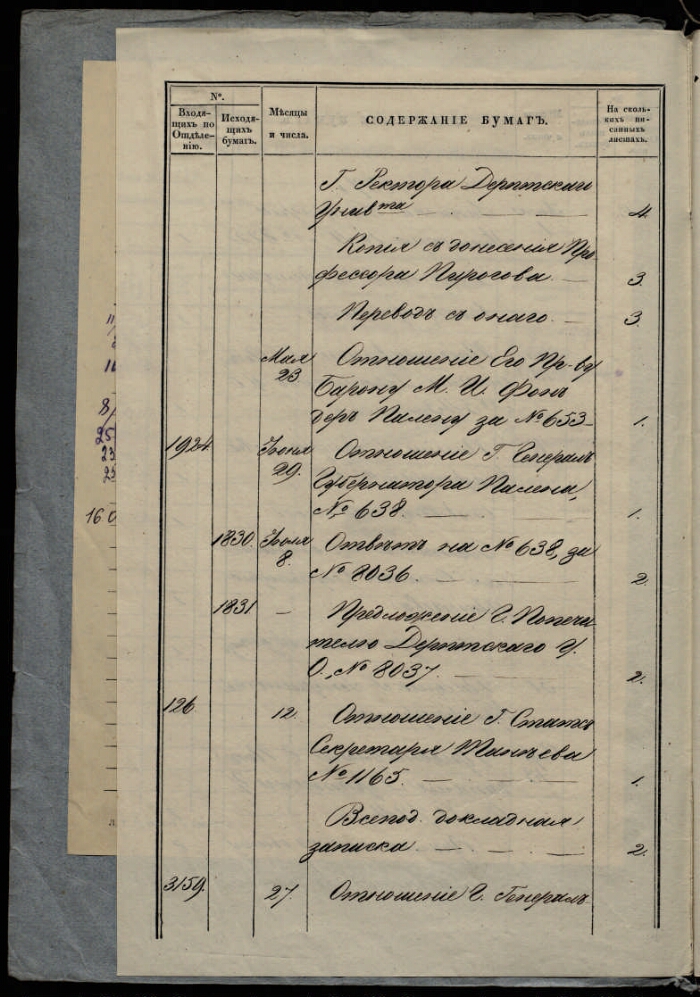 №.
Входя-
щихъ по
Отдѣле-
нію.
Исходя-
щихъ
бумагъ.
Мѣсяцы
и числа.
СОДЕРЖАНІЕ БУМАГЪ.
На сколь-
кихъ пи-
санныхъ
листахъ.
Г. Ректора Дерптскаго
Унив та — — 4.
Копія съ донесенія Про
фессора Пирогова. — 3.
Переводъ съ онаго. — 3.
Мая Отношеніе Его Пр-ву
23 Барону М. И. Фонъ
деръ Палену за № 653 — 1.
1924. Іюня Отношеніе Г. Генералъ
29. Губернатора Палена,
№ 638. — — 1.
1830. Іюля Отвѣтъ на № 638, за
8. № 8036. — — 2.
1831. — Предложеніе Г. Попечи
телю Дерптскаго У.
О., № 8037. — 2.
126 12. Отношеніе Г. Статсъ
Секретаря Танѣева
№ 1165. — — — 1.
Всепод. докладная
записка. — — — 2.
3159. 27. Отношеніе Г. Генералъ
8/
25
23
25
160